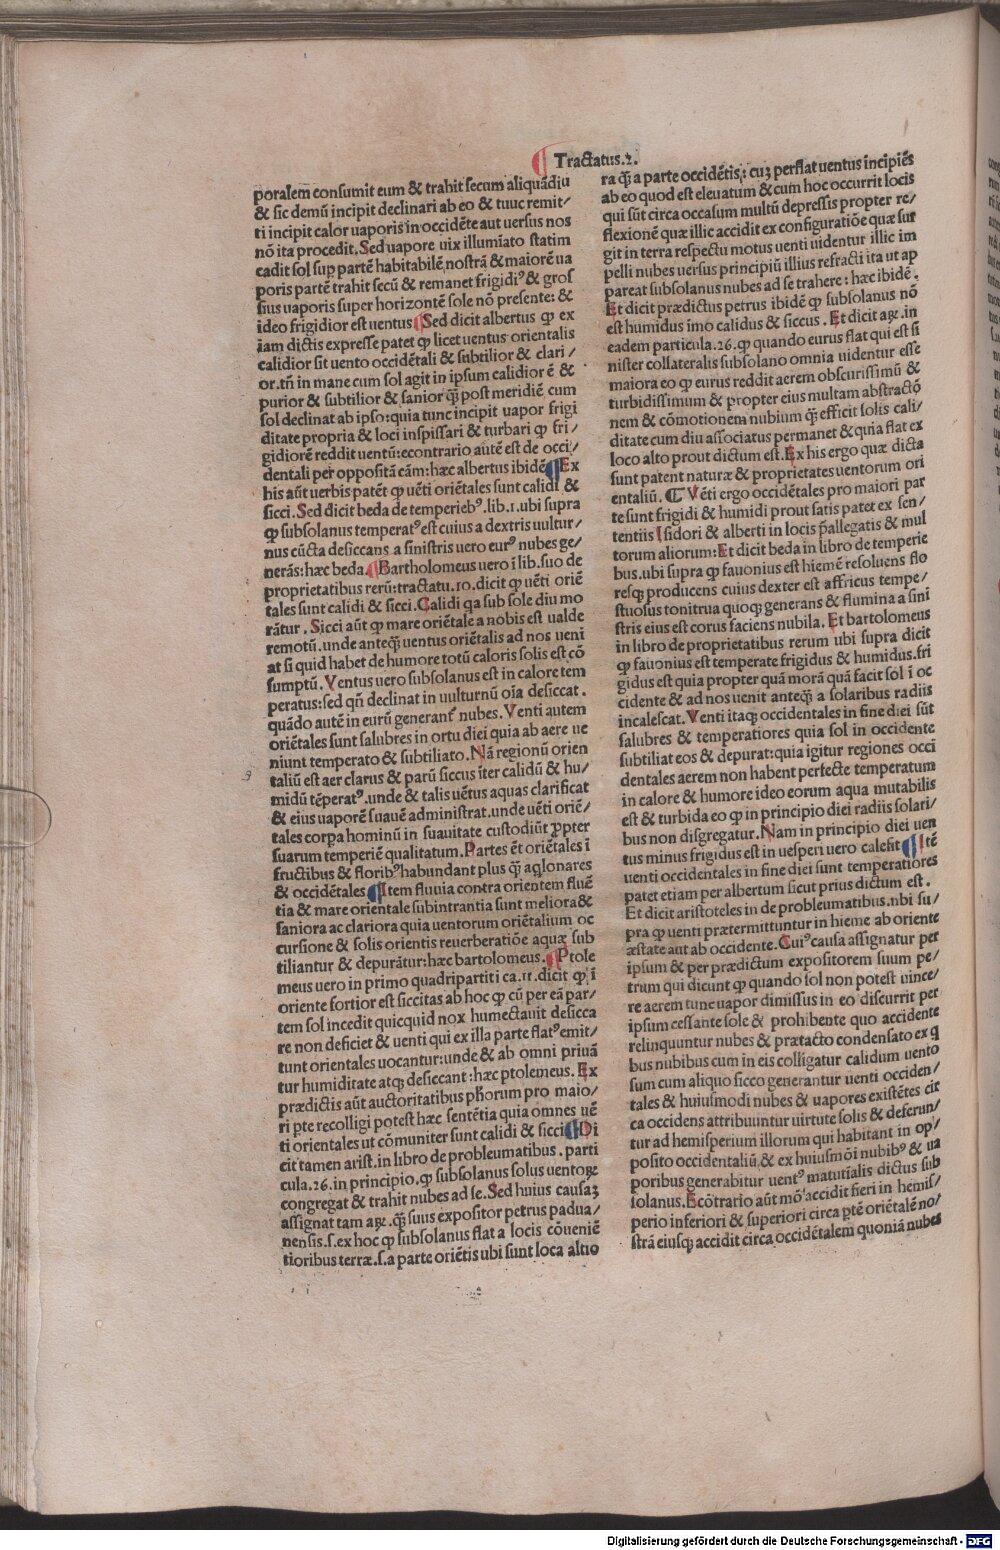 Tractatus.2.
poralem consumit eum & trahit secum aliquādiu
& sic demū incipit declinari ab eo & tuuc remit/
ti incipit calor uaporis in occidēte aut uersus nos
nō ita procedit. Sed uapore uix illumīato statim
cadit sol sup partē habitabilē nostrā & maiorē ua
poris partē trahit secū & remanet frigidiꝰ & gros
sius uaporis super horizontē sole nō presente: &
ideo frigidior est uentus ¶ Sed dicit albertus ꝙ ex
iam dictis expresse patet ꝙ licet uentus orientalis
calidior sit uento occidētali & subtilior & clari/
or.tn̄ in mane cum sol agit in ipsum calidior ē &
purior & subtilior & sanior q̄ꝫ post meridiē cum
sol declinat ab ipso:quia tunc incipit uapor frigi
ditate propria & loci inspissari & turbari ꝙ fri/
gidiorē reddit uentū:econtrario autē est de occi/
dentali per oppositā cām:hæc albertus ibidē ¶ Ex
his aūt uerbis patēt ꝙ uēti oriētales sunt calidi &
sicci. Sed dicit beda de temperiebꝰ.lib.1.ubi supra
ꝙ subsolanus temperatꝰ est cuius a dextris uultur/
nus cūcta desiccans a sinistris uero eurꝰ nubes ge/
nerās: hæc beda. ¶ Bartholomeus uero ī lib.suo de
proprietatibus rerū:tractatu.10.dicit ꝙ uēti oriē
tales sunt calidi & sicci. Calidi qa sub sole diu mo
rātur. Sicci aūt ꝙ mare oriētale a nobis est ualde
remotū.unde anteq̄ꝫ uentus oriētalis ad nos ueni
at si quid habet de humore totū caloris solis est cō
sumptū. Ventus uero subsolanus est in calore tem
peratus:sed qn̄ declinat in uulturnū oīa desiccat.
quādo autē in eurū generant nubes. Venti autem
oriētales sunt salubres in ortu diei quia ab aere ue
niunt temperato & subtiliato. Nā regionū orien
taliū est aer clarus & parū siccus īter calidū & hu/
midū tēperatꝰ.unde & talis uētus aquas clarificat
& eius uaporē suauē administrat.unde uēti oriē/
tales corpa hominū in suauitate custodiūt ꝓpter
suarum temperiē qualitatum. Partes ēt oriētales ī
fructibus & floribꝰ habundant plus q̄ꝫ aqlonares
& occidētales ¶ Item fluuia contra orientem fluē
tia & mare orientale subintrantia sunt meliora &
saniora ac clariora quia uentorum oriētalium oc
cursione & solis orientis reuerberatiōe aquæ sub
tiliantur & depurātur:hæc bartolomeus. ¶ Ptole
meus uero in primo quadripartiti ca.11.dicit ꝙ ī
oriente fortior est siccitas ab hoc ꝙ cū per eā par/
tem sol incedit quicquid nox humectauit desicca
re non deficiet & uenti qui ex illa parte flatꝰ emit/
tunt orientales uocantur:unde & ab omni priuā
tur humiditate atqꝫ desiccant:hæc ptolemeus. Ex
prædictis aūt auctoritatibus phorum pro maio/
ri pte recolligi potest hæc sentētia quia omnes uē
ti orientales ut cōmuniter sunt calidi & sicci ¶ Di
cit tamen arist.in libro de probleumatibus. parti
cula.26.in principio.ꝙ subsolanus solus uentoꝝ
congregat & trahit nubes ad se. Sed huius causaꝫ
assignat tam aꝝ.q̄ꝫ suus expositor petrus padua/
nensis.s.ex hoc ꝙ subsolanus flat a locis cōueniē
tioribus terræ.s.a parte oriētis ubi sunt loca altio
ra q̄ꝫ a parte occidētis: cuꝫ perflat uentus incipiēs
ab eo quod est eleuatum & cum hoc occurrit locis
qui sūt circa occasum multū depressis propter re/
flexionē quæ illic accidit ex configuratiōe quæ sur
git in terra respectu motus uenti uidentur illic im
pelli nubes uersus principiū illius refracti ita ut ap
pareat subsolanus nubes ad se trahere: hæc ibidē.
Et dicit prædictus petrus ibidē ꝙ subsolanus nō
est humidus īmo calidus & siccus. Et dicit aꝝ.in
eadem particula.26.ꝙ quando eurus flat qui est si
nister collateralis subsolano omnia uidentur esse
maiora eo ꝙ eurus reddit aerem obscurissimū &
turbidissimum & propter eius multam abstractō
nem & cōmotionem nubium q̄ꝫ efficit solis cali/
ditate cum diu associatus permanet & quia flat ex
loco alto prout dictum est. Ex his ergo quæ dicta
sunt patent naturæ & proprietates uentorum ori
entaliū. ¶ Vēti ergo occidētales pro maiori par
te sunt frigidi & humidi prout satis patet ex sen/
tentiis Isidori & alberti in locis p̄allegatis & mul
torum aliorum: Et dicit beda in libro de temperie
bus.ubi supra ꝙ fauonius est hiemē resoluens flo
resqꝫ producens cuius dexter est affricus tempe/
stuosus tonitrua quoqꝫ generans & flumina a sini
stris eius est corus faciens nubila. Et bartolomeus
in libro de proprietatibus rerum ubi supra dicit
ꝙ fauonius est temperate frigidus & humidus.fri
gidus est quia propter quā morā quā facit sol ī oc
cidente & ad nos uenit anteq̄ꝫ a solaribus radiis
incalescat. Venti itaqꝫ occidentales in fine diei sūt
salubres & temperatiores quia sol in occidente
subtiliat eos & depurat:quia igitur regiones occi
dentales aerem non habent perfecte temperatum
in calore & humore ideo eorum aqua mutabilis
est & turbida eo ꝙ in principio diei radiis solari/
bus non disgregatur. Nam in principio diei uen
tus minus frigidus est in uesperi uero calefit ¶ Itē
uenti occidentales in fine diei sunt temperatiores
patet etiam per albertum sicut prius dictum est.
Et dicit aristoteles in de probleumatibus.nbi su/
pra ꝙ uenti prætermittuntur in hieme ab oriente
æstate aut ab occidente. Cuiꝰ causa assignatur per
ipsum & per prædictum expositorem suum pe/
trum qui dicunt ꝙ quando sol non potest uince/
re aerem tunc uapor dimissus in eo discurrit per
ipsum cessante sole & prohibente quo accidente
relinquuntur nubes & prætacto condensato ex q
bus nubibus cum in eis colligatur calidum uento
sum cum aliquo sicco generantur uenti occiden/
tales & huiusmodi nubes & uapores existētes cir
ca occidens attribuuntur uirtute solis & deferun/
tur ad hemisperium illorum qui habitant in op/
posito occidentaliū & ex huiusmōi nubibꝰ & ua
poribus generabitur uentꝰ matutīalis dictus sub
solanus. Ecōtrario aūt mō accidit fieri in hemis/
perio inferiori & superiori circa ptē oriētalē no/
strā eiusqꝫ accidit circa occidētalem quoniā nubes
Digitalisierung gefördert durch die Deutsche Forschungsgemeinschaft - DFG